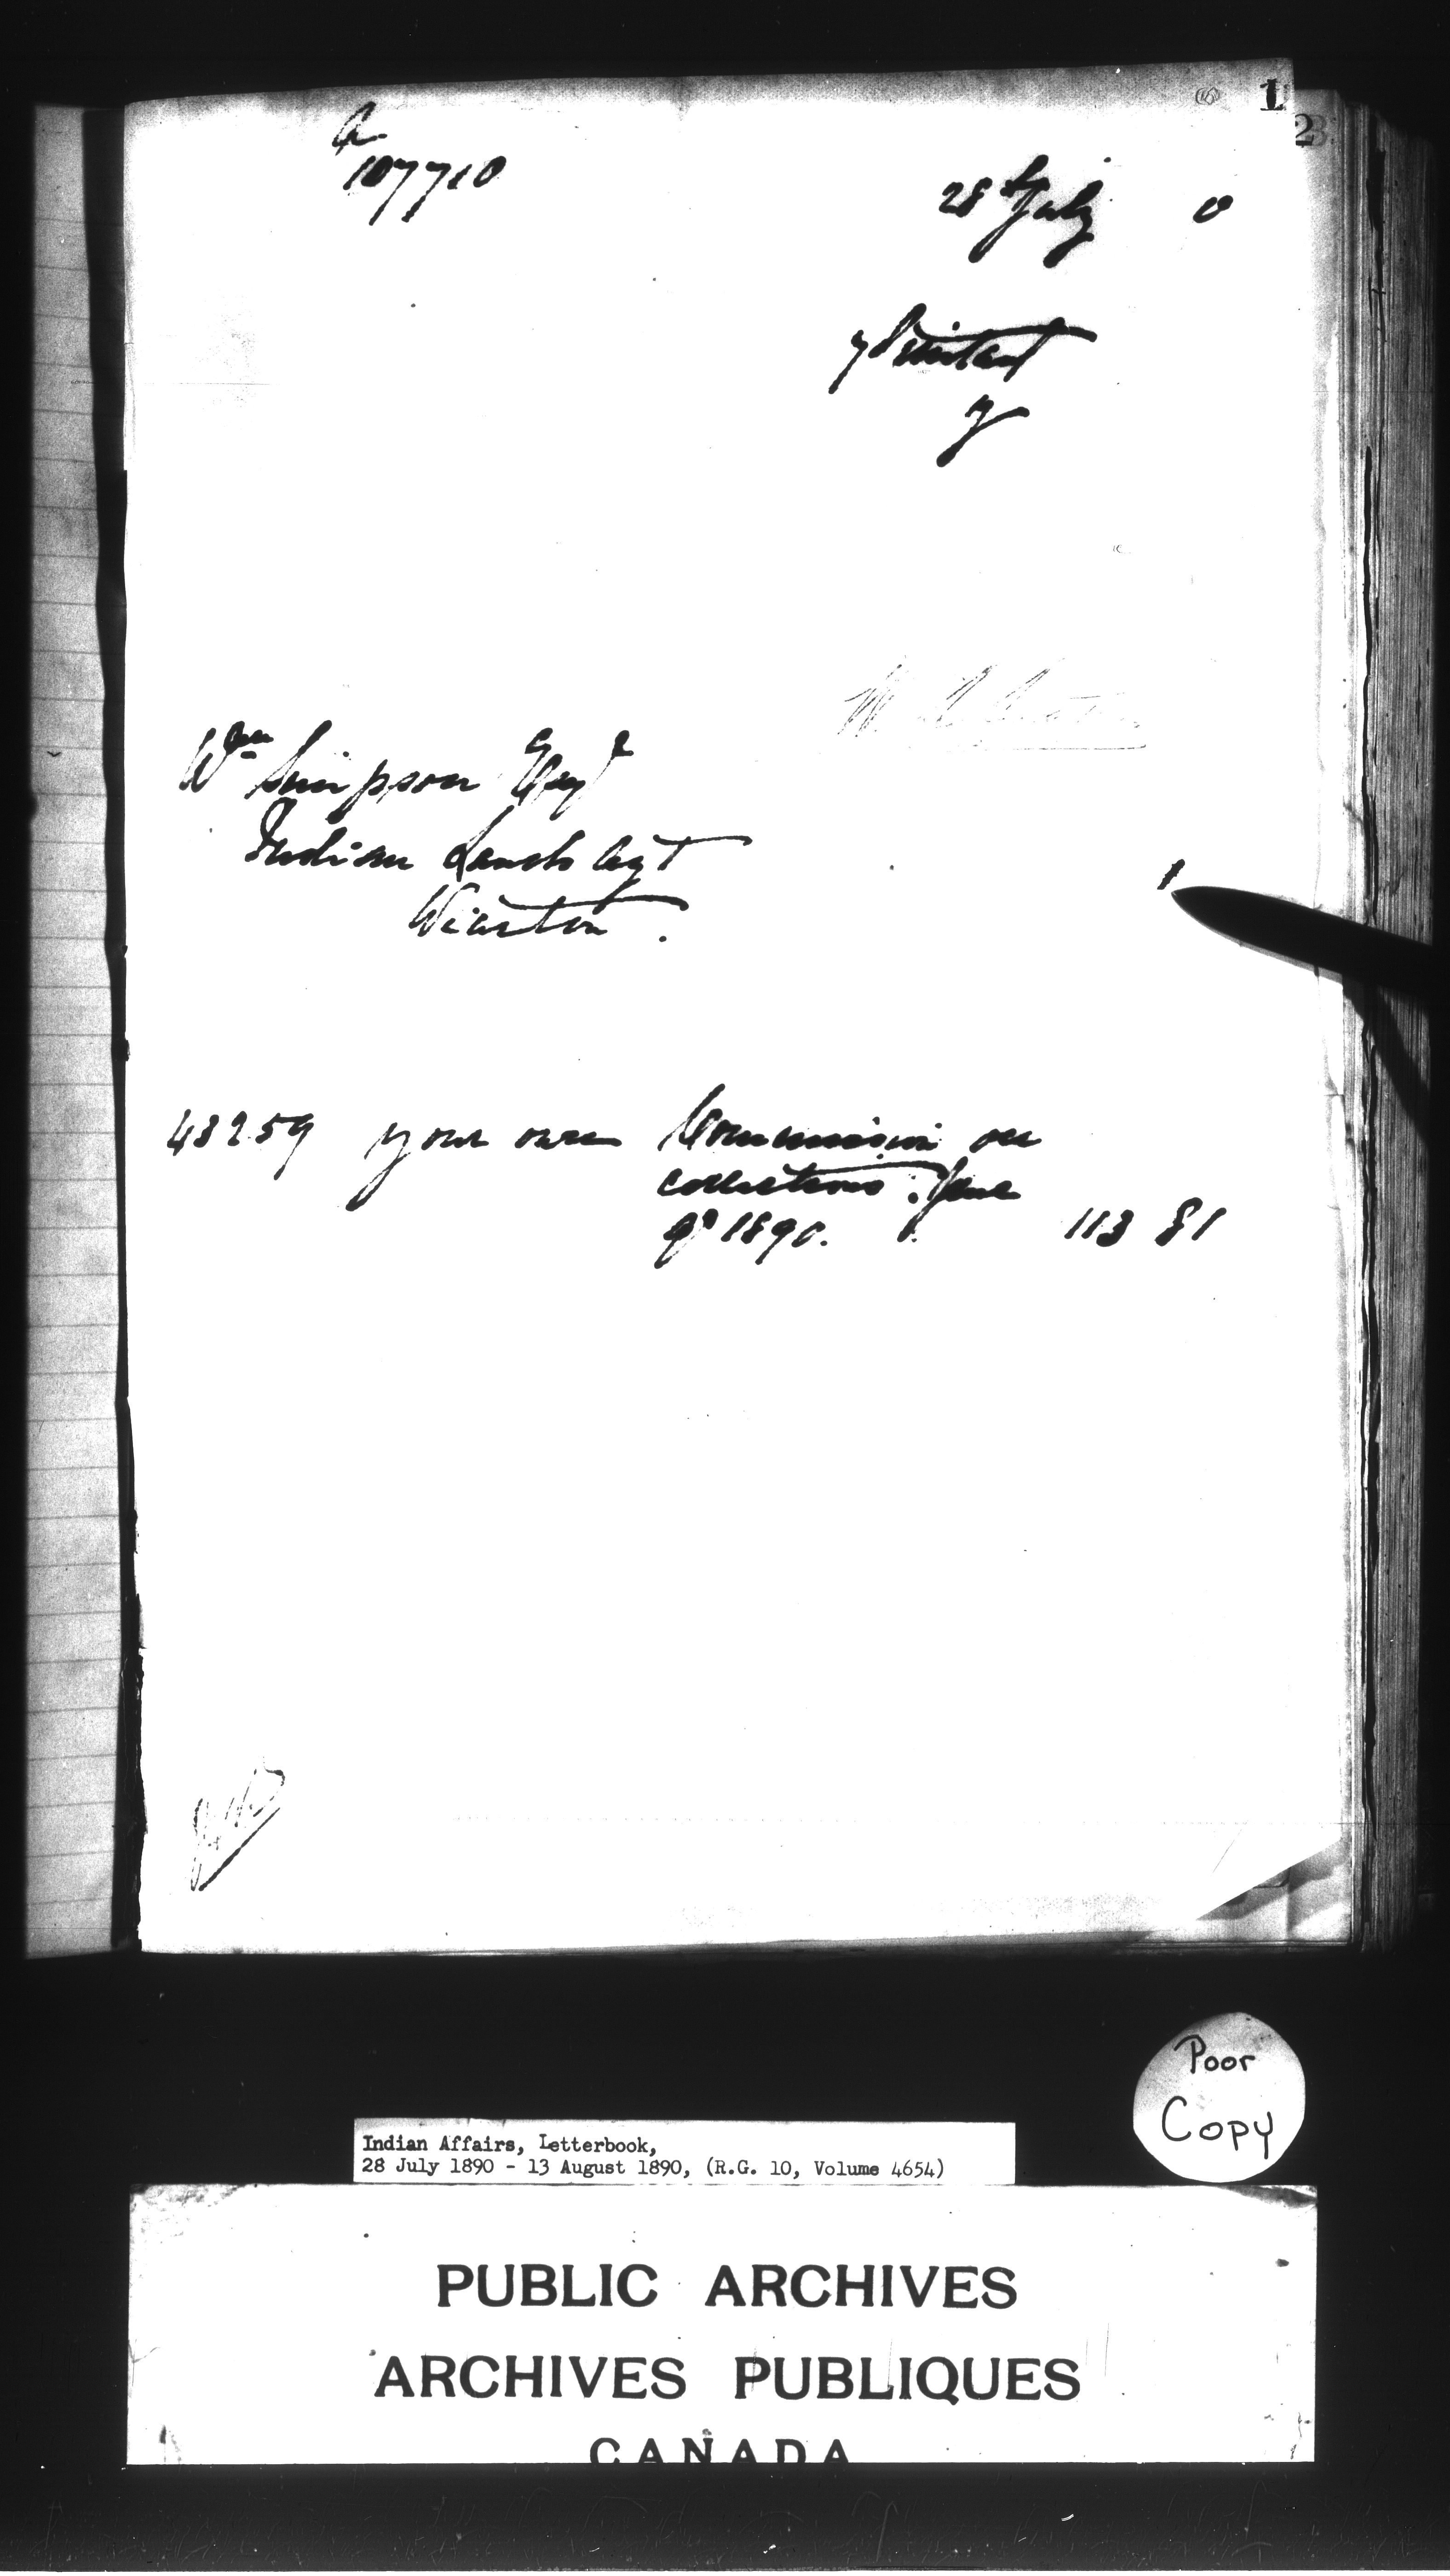 1
2
A
107710
28th July 0
Wm Simpson Esqr
Indian Lands Agt
Wiarton.
1
48259 your own Commission on
collections. June
Qr 1890. 113 81
Poor
Copy
Indian Affairs, Letterbook,
28 July 1890 - 13 August 1890, (R.G. 10, Volume 4654)
PUBLIC ARCHIVES
ARCHIVES PUBLIQUES
CANADA